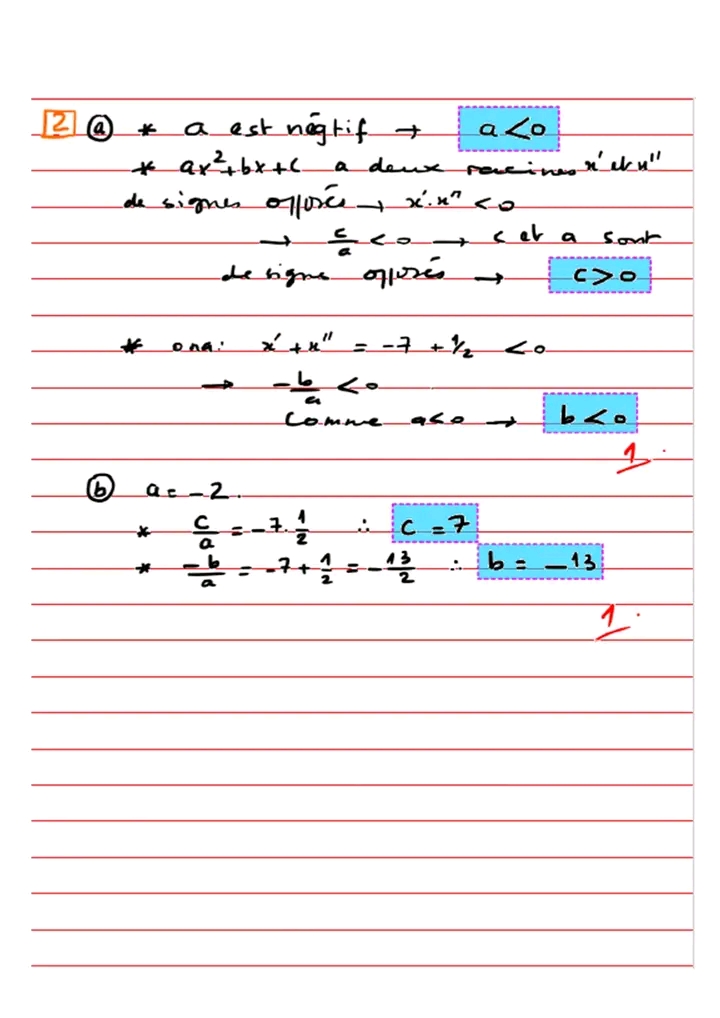 2 ⓐ * a est négtif → a<0
* ax²+bx+c a deux racines x' et x''
de signes opposés → x'.x'' < 0
→ c/a < 0 → c et a sont
de signe opposés → c > 0
* ona: x' + x'' = -7 + 1/2 < 0
→ -b/a < 0
Comme a<0 → b < 0
1
ⓑ a = -2.
* c/a = -7.1/2 ∴ c = 7
* -b/a = -7 + 1/2 = -13/2 ∴ b = -13
1